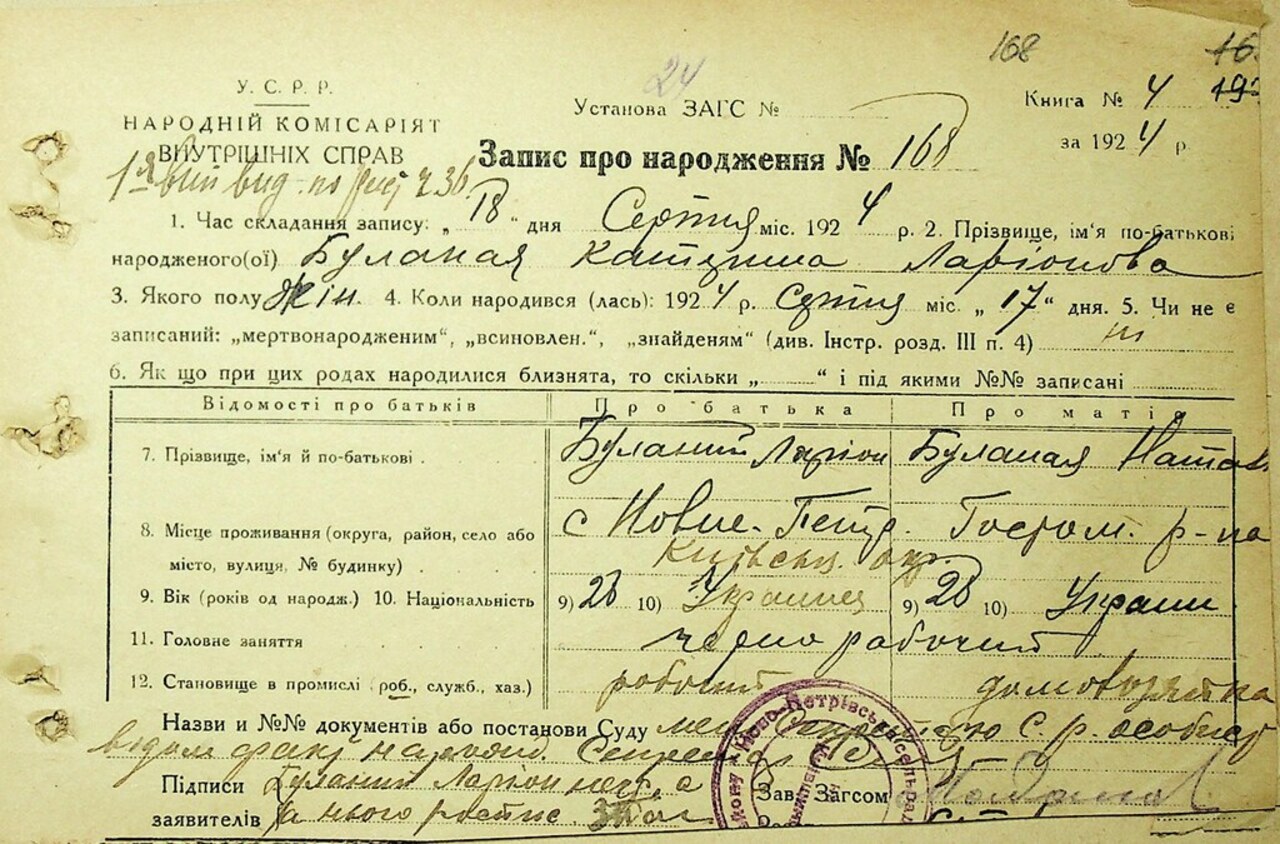 168
24
У. С. Р. Р.
НАРОДНІЙ КОМІСАРІЯТ
ВНУТРІШНІХ СПРАВ
Установа ЗАГС №
Книга № 4
за 1924 р.
Запис про народження № 168
1. Час складання запису: „18" дня Серпня міс. 1924 р. 2. Прізвище, ім'я по-батькові
народженого(ої) Буланая Катерина Ларіонова
3. Якого полу жін. 4. Коли народився (лась): 1924 р. Серпня міс. „17" дня. 5. Чи не є
записаний: „мертвонародженим", „всиновлен.", „знайденям" (див. Інстр. розд. III п. 4) ні
6. Як що при цих родах народилися близнята, то скільки „ " і під якими №№ записані
Відомості про батьків Про батька Про матір
7. Прізвище, ім'я й по-батькові . Буланий Ларіон Буланая Натал
8. Місце проживання (округа, район, село або с Нове-Петр. Гостом. р-на
місто, вулиця, № будинку) . Київськ. окр.
9. Вік (років од народж.) 10. Національність 9) 28 10) Українец 9) 28 10) Україн
11. Головне заняття чорно рабочий
12. Становище в промислі (роб., служб., хаз.) робочий домохозяйка
Назви и №№ документів або постанови Суду с. р. особист
відом факт народж.
Підписи Буланий Ларіон а
заявителів за нього
Зав. Загсом